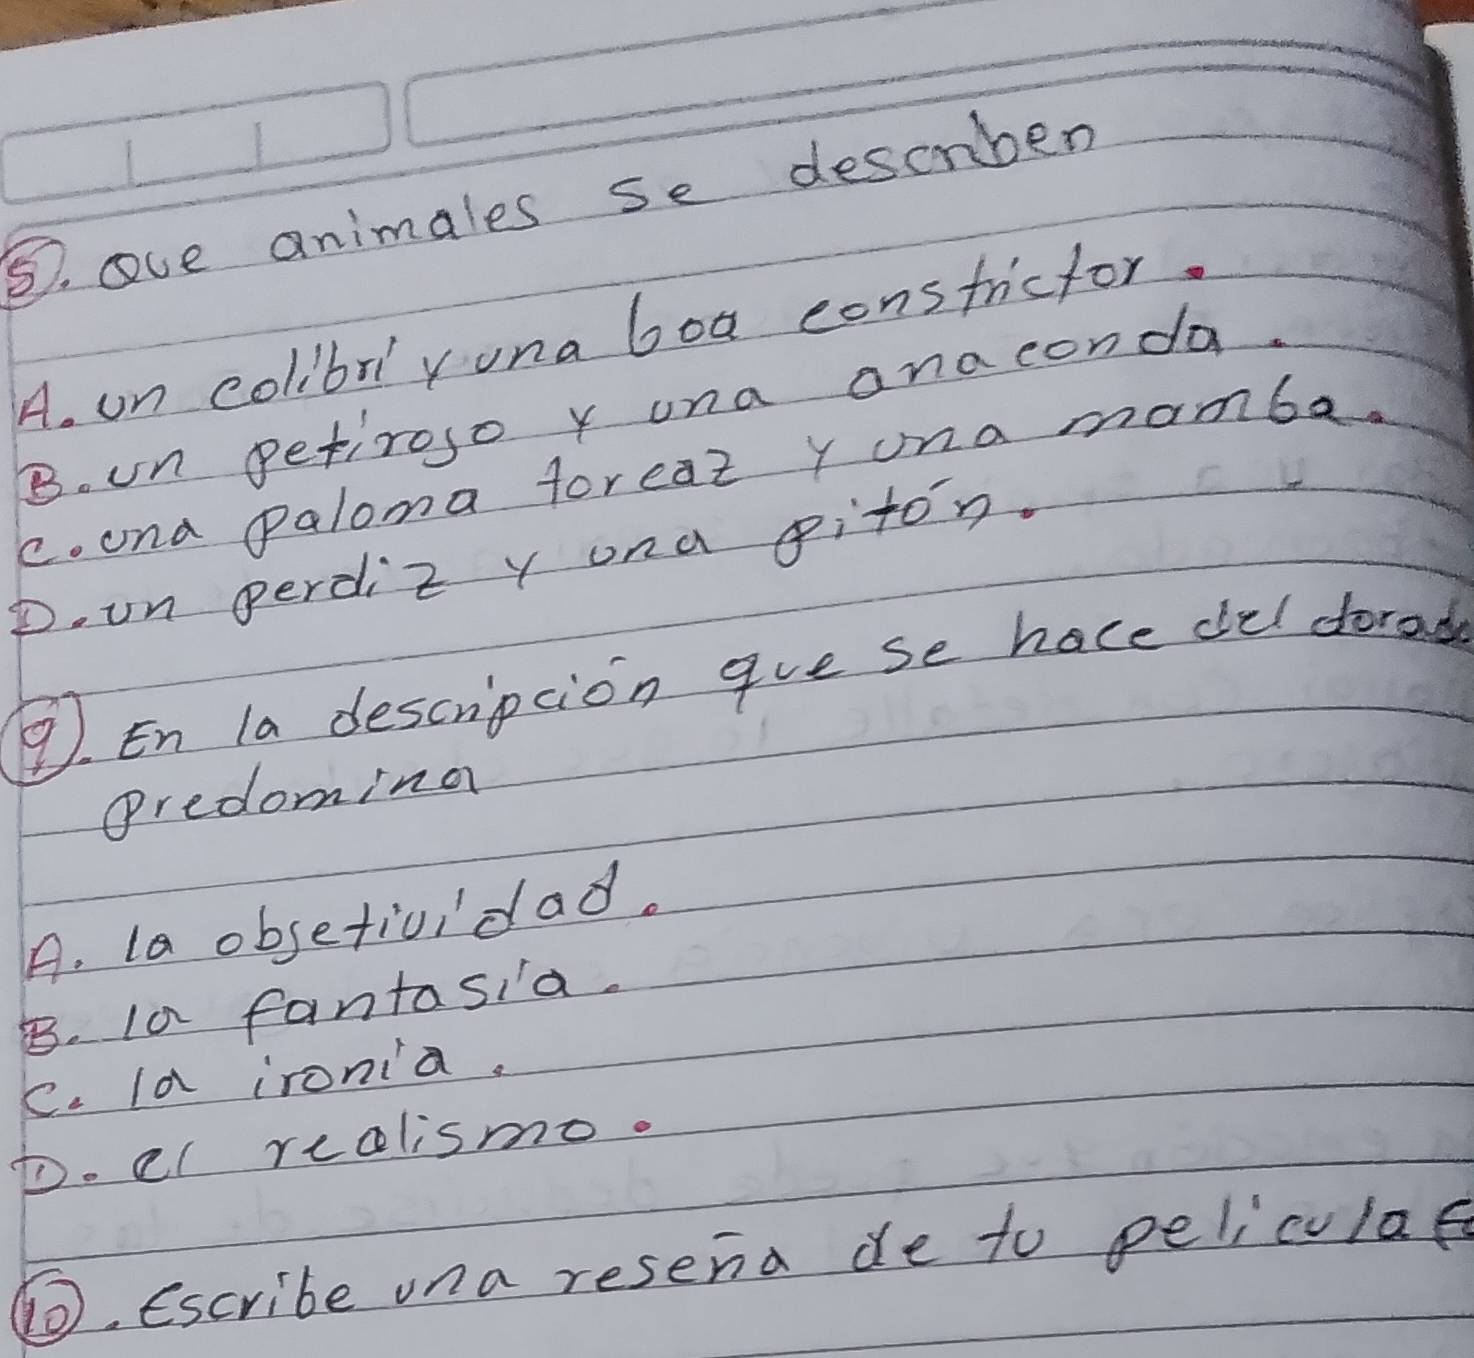 5. Que animales se describen
A. un colibrí y una boa constrictor.
B. un petirojo y una anaconda.
C. una paloma foreaz y una mamba.
D. un perdiz y una pitón.
9. En la descripción que se hace del dorado
Predomina
A. la objetividad.
B. la fantasía.
C. la ironía.
D. el realismo.
10. Escribe una reseña de tu película